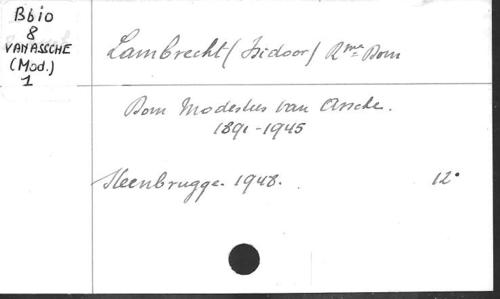 Bbio
8
VAN ASSCHE
(Mod.)
1
Lambrecht (Isidoor) Rme Dom
Dom Modestus van Assche.
1891-1945
Steenbrugge. 1948. 12°